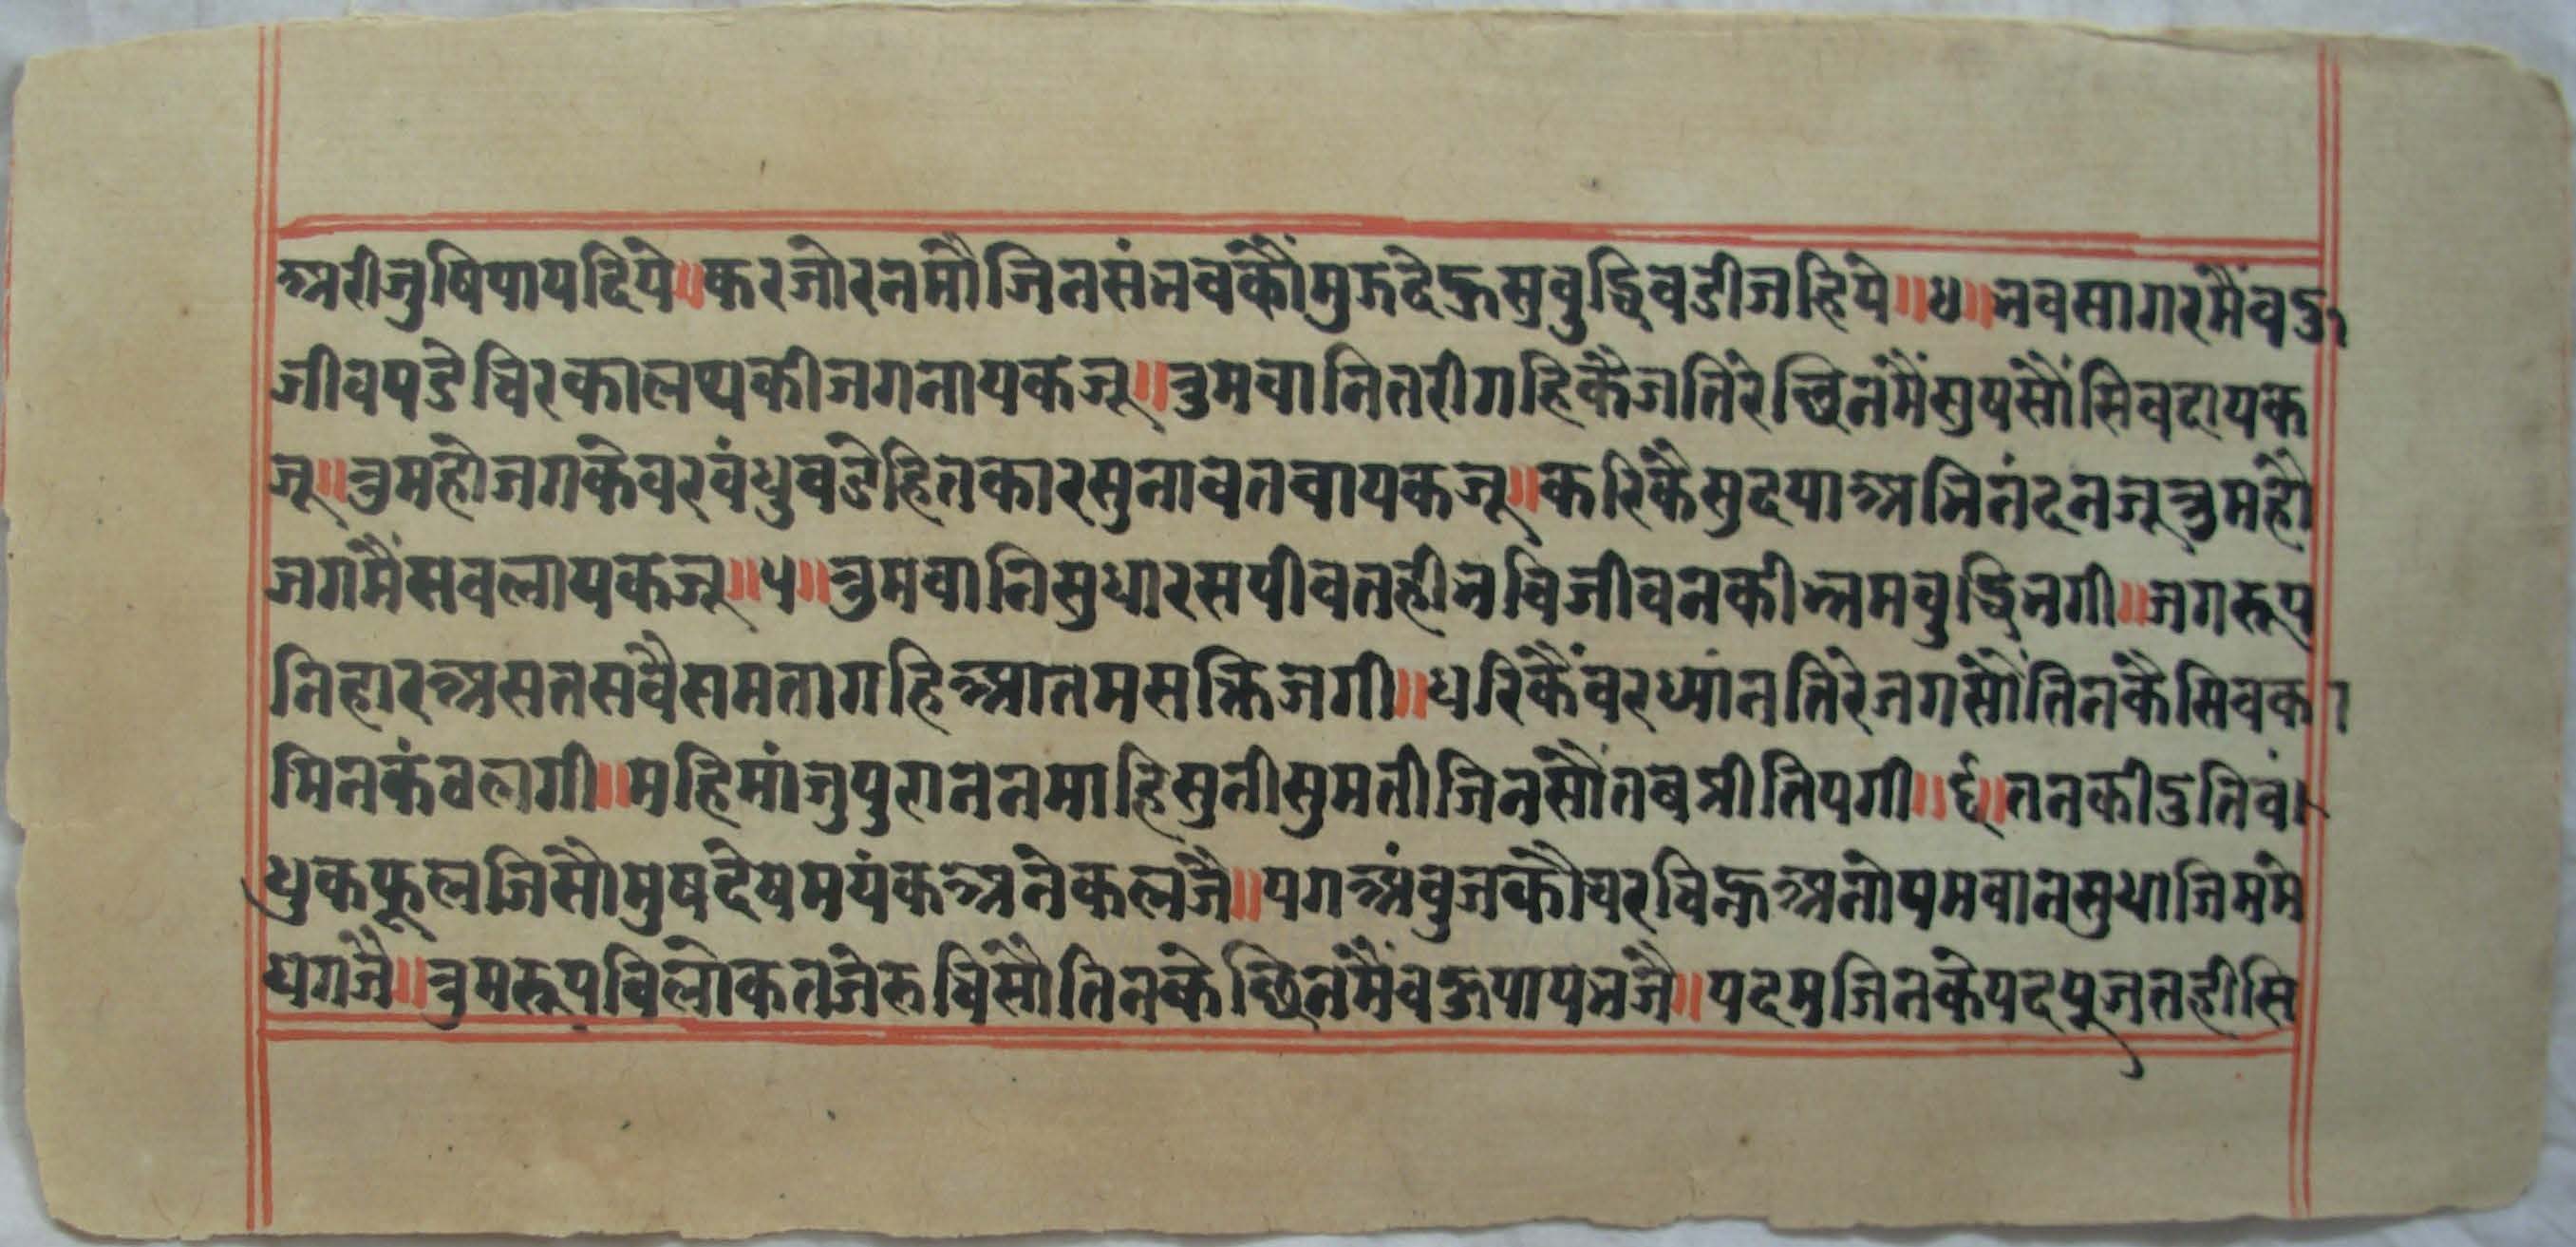 अरीजुषिपायदिये॥करजोरनमौजिनसंभवकौंमुझदेहुसुबुद्धिवडीजहिये॥४॥भवसागरमैंवहु
जीवपडेचिरकालथकीजगनायकजू॥तुमवानितरीगहिकैजतिरेछिनमैंसुषसौंसिवदायक
जू॥तुमहोजगकेवरवंधुवडेहितकारसुनावतवायकजू॥करिकैंसुदयाअभिनंदनजूतुमहौ
जगमैंसवलायकजू॥५॥तुमवानिसुधारसपीवतहीभविजीवनकीभ्रमवुद्धिभगी॥जगरूप
निहारअसतसवैसमतागहिआतमसक्तिजगी॥धरिकैंवरध्यांनतिरेजगसौंतिनकैसिवका
मिनकंवलगी॥महिमांजुपुराननमाहिसुनीसुमतीजिनसौंतवप्रीतिपगी॥६॥तनकीदुतिवं
धुकफूलजिसौमुषदेषमयंकअनेकलजै॥पगअंवुजकौवरचिन्हअनोपमवानसुधाजिममे
घगजै॥तुमरूपविलोकतजेरुचिसौंतिनकेछिनमैंवहुपापभजै॥पदमजिनकेपदपूजतहीसि